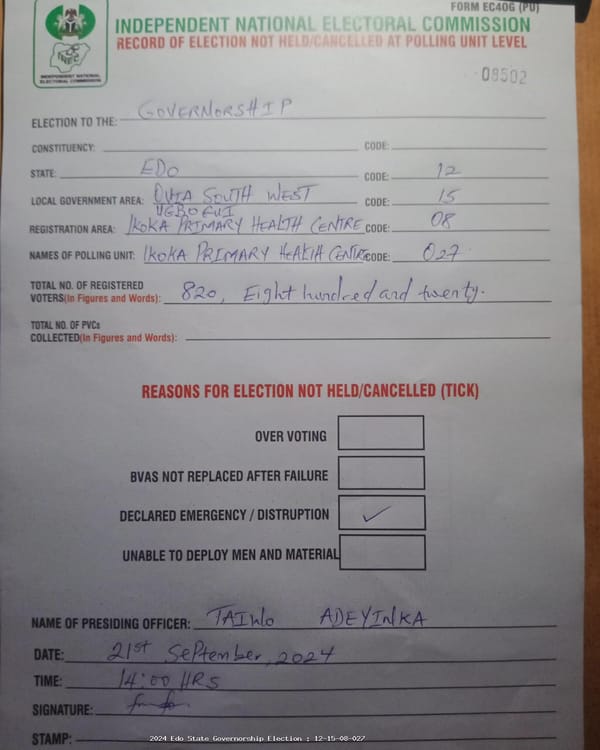 FORM EC40G (PU)
INDEPENDENT NATIONAL ELECTORAL COMMISSION
RECORD OF ELECTION NOT HELD/CANCELLED AT POLLING UNIT LEVEL
INEC
INDEPENDENT NATIONAL
ELECTORAL COMMISSION
09502
ELECTION TO THE: GOVERNORSHIP
CONSTITUENCY: CODE:
STATE: EDO CODE: 12
LOCAL GOVERNMENT AREA: OVIA SOUTH WEST CODE: 15
UGBOGUI
REGISTRATION AREA: IKOKA PRIMARY HEALTH CENTRE CODE: 08
NAMES OF POLLING UNIT: IKOKA PRIMARY HEALTH CENTRE CODE: 027
TOTAL NO. OF REGISTERED
VOTERS(In Figures and Words): 820, Eight hundred and twenty.
TOTAL NO. OF PVCs
COLLECTED(In Figures and Words):
REASONS FOR ELECTION NOT HELD/CANCELLED (TICK)
OVER VOTING
BVAS NOT REPLACED AFTER FAILURE
DECLARED EMERGENCY / DISTRUPTION ✓
UNABLE TO DEPLOY MEN AND MATERIAL
NAME OF PRESIDING OFFICER: TAIWO ADEYINKA
DATE: 21st September, 2024
TIME: 14:00 HRS
SIGNATURE:
STAMP:
2024 Edo State Governorship Election : 12-15-08-027